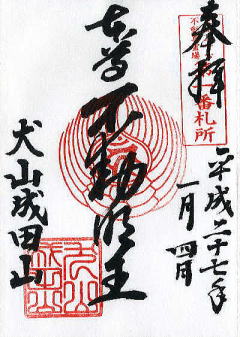 奉拝
番札所
平成二十七年
一月四日
本尊
不動明王
犬山成田山